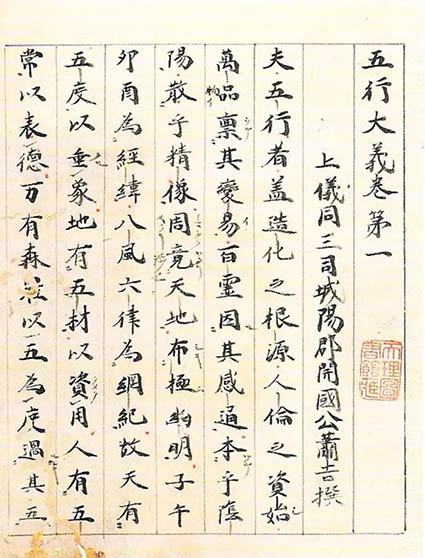 五行大義卷第一
上儀同三司城陽郡開國公蕭吉撰
夫五行者盖造化之根源人倫之資始
萬品禀其變易百靈因其感通本乎陰
陽散乎精像周竟天地布極幽明子午
卯酉為經緯八風六律為綱紀故天有
五度以垂象地有五材以資用人有五
常以表德万有森羅以五為度過其五